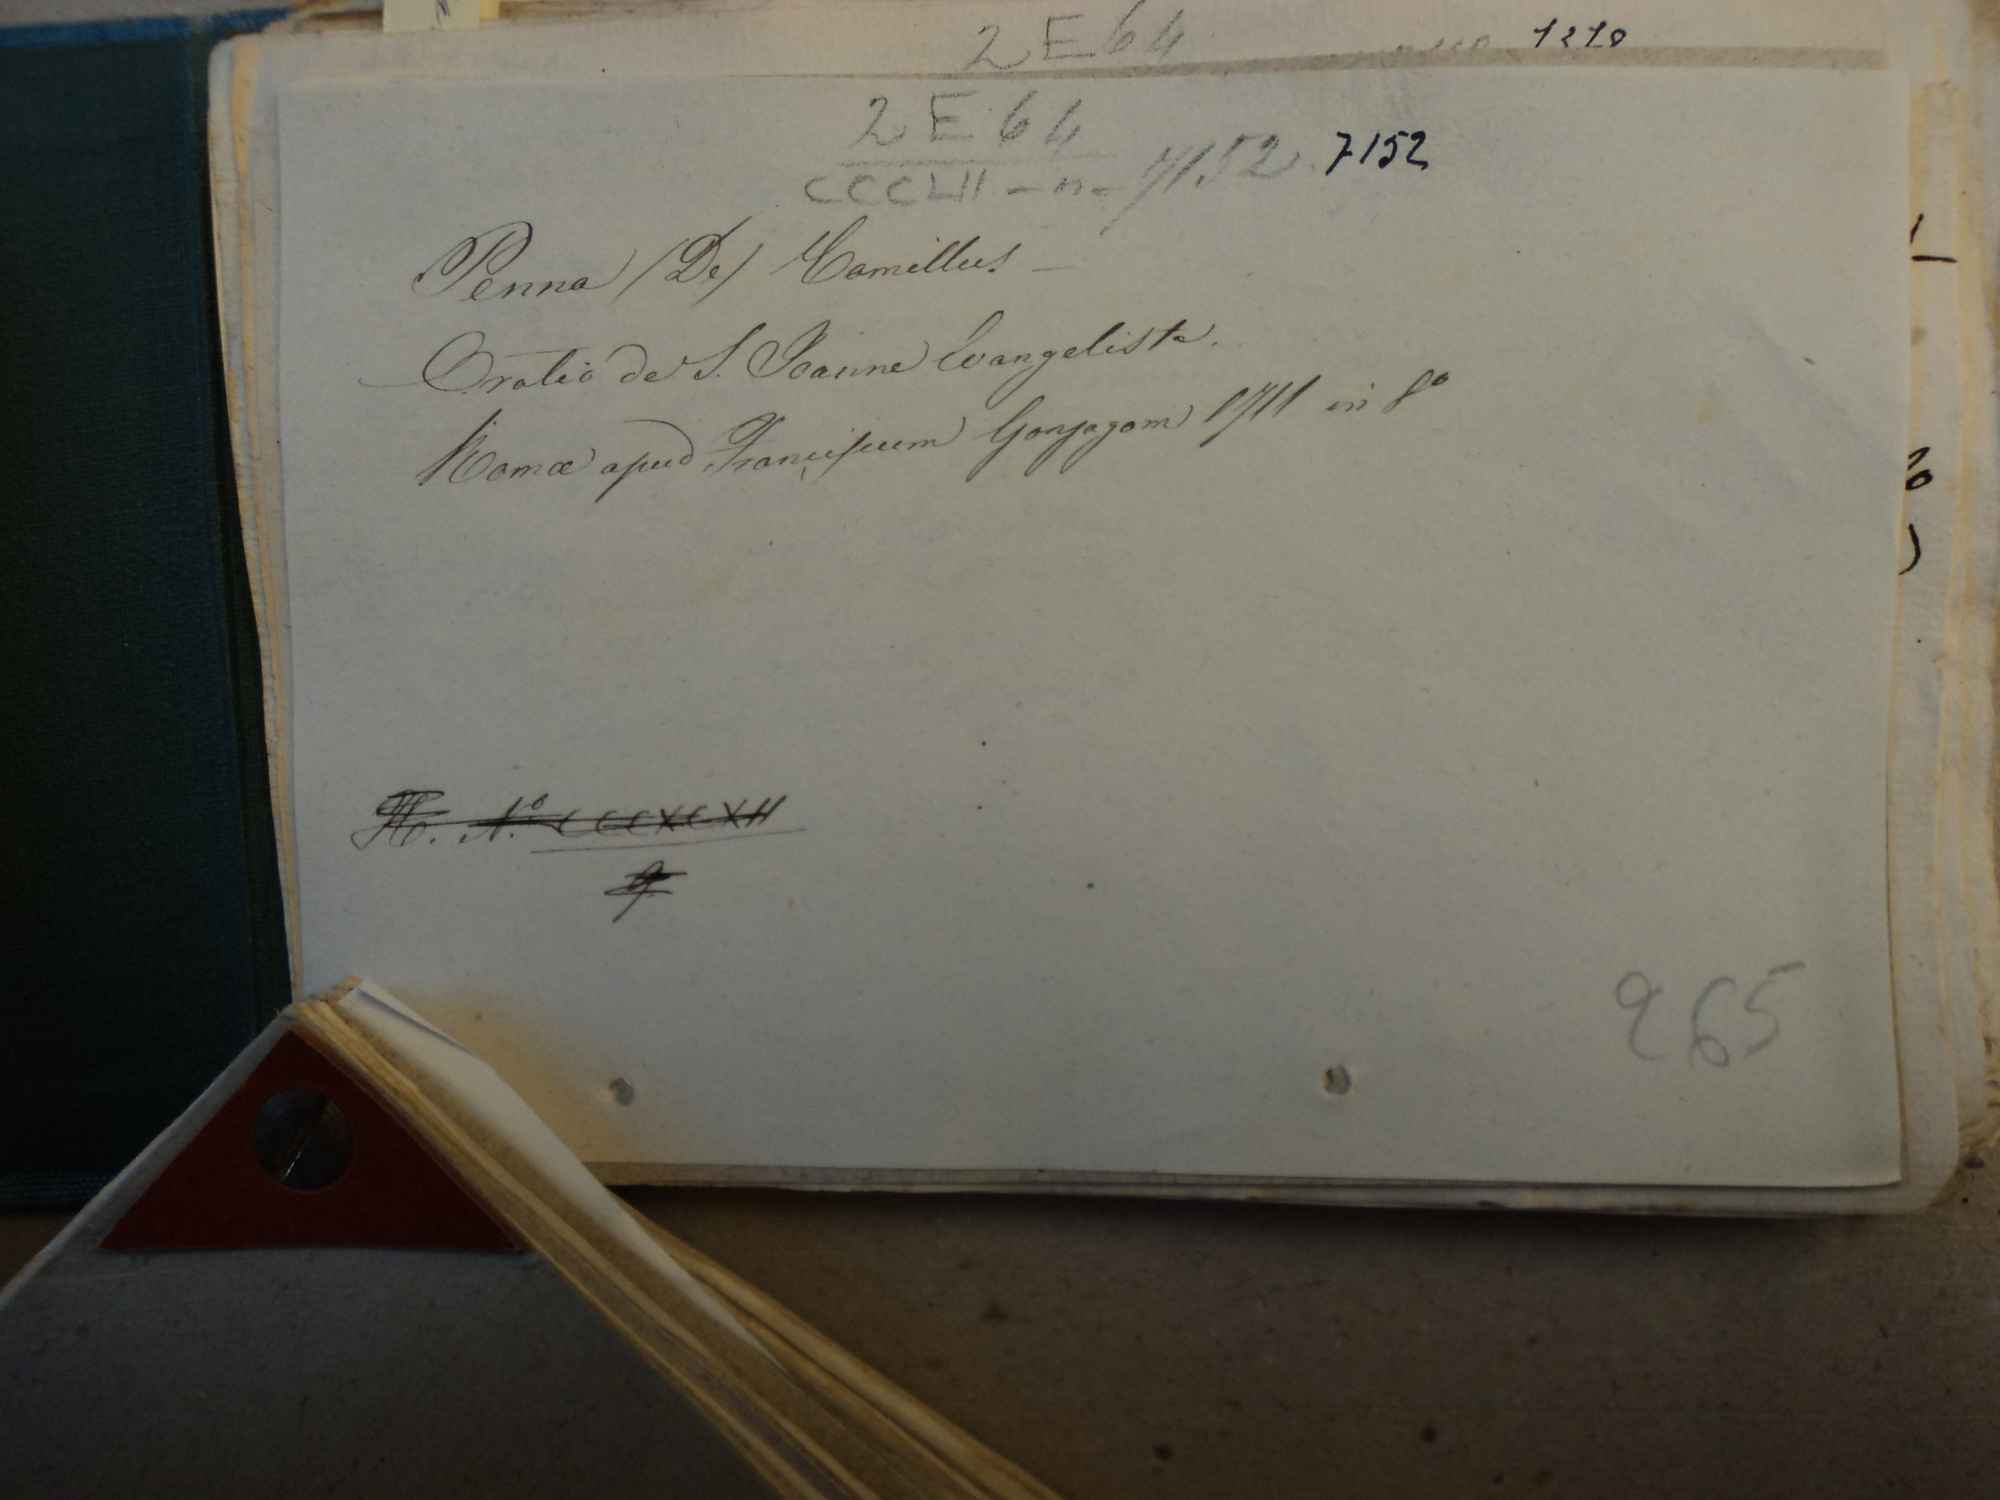 2 E 64
2 E 64
CCCLII - n - 7152. 7152
Penna (De) Camillus -
Oratio de S. Joanne Evangelista.
Romæ apud Franciscum Gonzagam 1711 in 8°
N°
265